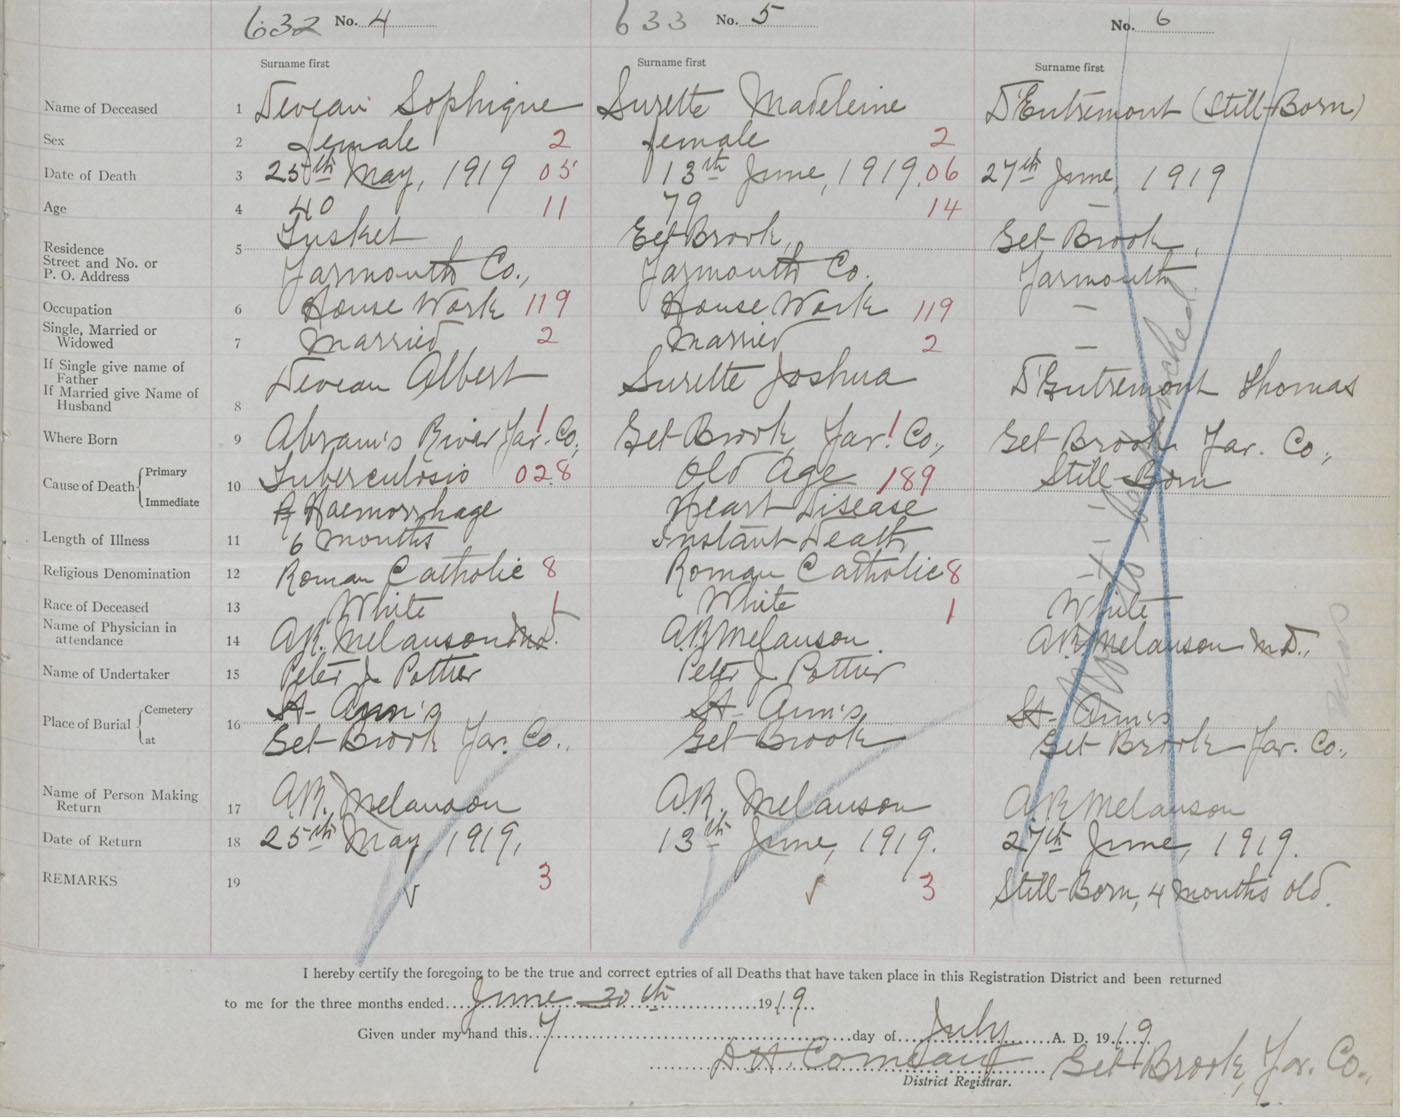 632 No. 4 633 No. 5 No. 6
Surname first Surname first Surname first
Name of Deceased 1 Deveau Sophique Surette Madeleine D'Entremont (Still-Born)
Sex 2 female 2 female 2
Date of Death 3 25th May, 1919 05 13th June, 1919. 06 27th June, 1919
Age 4 40 11 79 14 —
Residence 5 Tusket Eel Brook, Eel Brook,
Street and No. or
P. O. Address Yarmouth Co., Yarmouth Co. Yarmouth
Occupation 6 House Work 119 House Work 119 —
Single, Married or
Widowed 7 Married 2 Married 2 —
If Single give name of
Father
If Married give Name of
Husband 8 Deveau Albert Surette Joshua D'Entremont Thomas
Where Born 9 Abram's River Yar. Co., 1 Eel Brook Yar. Co., 1 Eel Brook Yar. Co.,
Cause of Death Primary 10 Tuberculosis 028 Old Age 189 Still-Born
Immediate Haemorrhage Heart Disease
Length of Illness 11 6 months Instant Death —
Religious Denomination 12 Roman Catholic 8 Roman Catholic 8 —
Race of Deceased 13 White 1 White 1 White
Name of Physician in
attendance 14 A.R. Melanson M.D. A.R. Melanson. A.R. Melanson M.D.,
Name of Undertaker 15 Peter J Pottier Peter J Pottier
Place of Burial Cemetery 16 St- Ann's St- Ann's St- Ann's
at Eel Brook Yar. Co., Eel Brook Eel Brook Yar. Co.,
Name of Person Making
Return 17 A.R. Melanson A.R. Melanson A.R. Melanson
Date of Return 18 25th May, 1919, 13th June, 1919. 27th June, 1919.
REMARKS 19 3 3 Still-Born, 4 months old.
Not to be punched.
I hereby certify the foregoing to be the true and correct entries of all Deaths that have taken place in this Registration District and been returned
to me for the three months ended June 30th 1919.
Given under my hand this 7 day of July A. D. 1919.
D H. Comeau Eel Brook, Yar. Co.,
District Registrar.